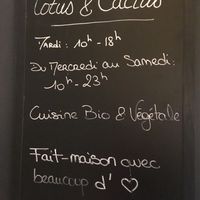 Lotus & Cactus
Mardi : 10h - 18h
Du Mercredi au Samedi:
10h - 23h
Cuisine Bio & Végétale
Fait-maison avec
beaucoup d' ♡